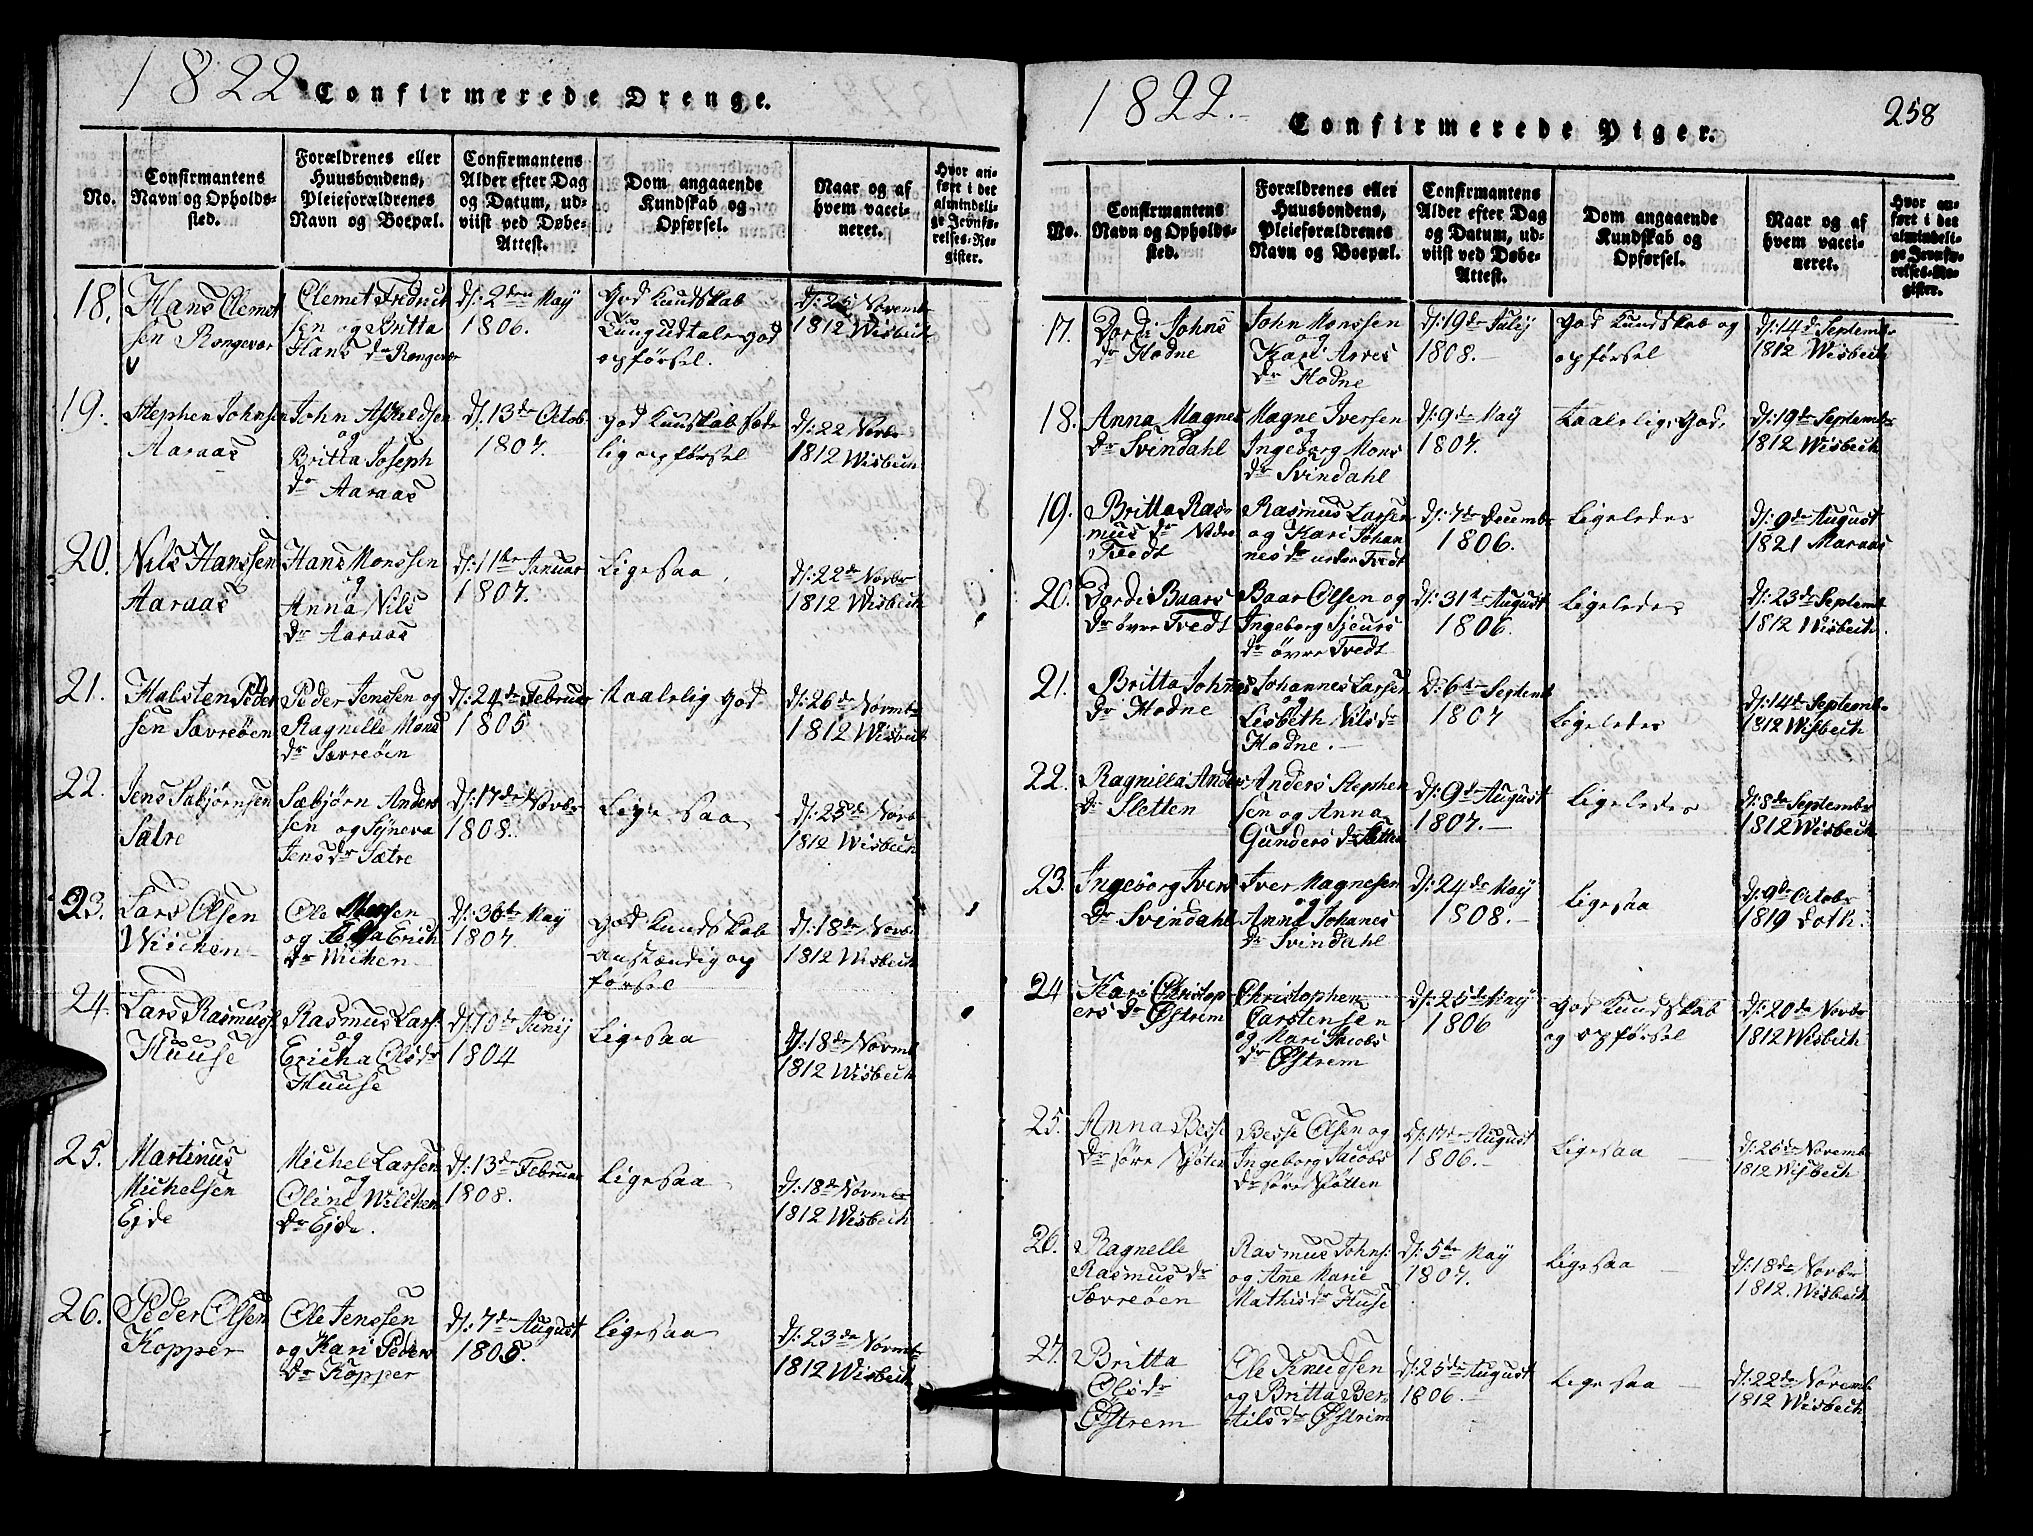 1822 Confirmerede Drenge.
No.
Confirmantens
Navn og Opholds-
sted.
Forældrenes eller
Huusbondens,
Pleieforældrenes
Navn og Boepæl.
Confirmantens
Alder efter Dag
og Datum, ud-
viist ved Døbe-
Attest.
Dom angaaende
Kundskab og
Opførsel.
Naar og af
hvem vacci-
neret.
Hvor an-
ført i det
almindeli-
ge Jevnfø-
relses-Re-
gister.
18.
Hans Clemet
sen Rongevær
Clemet Fridrich
sen og Britta
Hans dr Rongevær
d/: 2den May
1806.
God Kundskab
Tungudtale god
opførsel.
d/: 25 Novembr
1812 Wisbech
19.
Stephen Johnsen
Aaraas
John Askildsen
og
Britta Joseph
dr Aaraas
d/: 13de Octob
1807.
God Kundskab sæde
lig opførsel
d/: 22 Novbr
1812 Wisbech
20.
Nils Hanssen
Aaraas
Hans Monssen
og
Anna Nils
dr Aaraas
d/: 11te Januar
1807.
Ligesaa
d/: 22de Novbr
1812 Wisbech
21.
Halsten Peder
sen Sævreøen
Peder Jenssen og
Ragnille Mons
dr Sævreøen
d/: 24de Februar
1805
Taalelig God
d/: 26de Novmbr
1812 Wisbech
22.
Jens Sæbjørnsen
Sætre
Sæbjørn Anders
sen og Syneva
Jens dr Sætre
d/: 17de Novbr
1808.
Ligesaa
d/: 28de Novb
1812 Wisbech
23.
Lars Olsen
Wichen
Ole
og Erich
dr Wichen
d/: 30te May
1807.
God Kundskab
anstændig op
førsel
d/: 18de Novbr
1812 Wisbech
24.
Lars Rasmuss
Huuse
Rasmus Lars:
og
Ericha Ols dr
Huuse
d/: 10de Junij
1804
Ligesaa
d/: 18de Novmb
1812 Wisbech
25.
Martinus
Michelsen
Ejde
Michel Larsen
og
Oline Wilchen
dr Ejde.
d/: 13de Februar
1808.
Ligesaa
d/: 18de Novmbr
1812 Wisbech
26.
Peder Olsen
Kopper
Ole Jenssen
og Kari Peders
dr Kopper
d/: 7de August
1805.
Ligesaa
d/: 23de Novmbr
1812 Wisbech
1822.
Confirmerede Piger.
258
No.
Confirmantens
Navn og Opholds-
sted.
Forældrenes eller
Huusbondens,
Pleieforældrenes
Navn og Boepæl.
Confirmantens
Alder efter Dag
og Datum, ud-
viist ved Døbe-
Attest.
Dom angaaende
Kundskab og
Opførsel.
Naar og af
hvem vacci-
neret.
Hvor an-
ført i det
almindeli-
ge Jevnfø-
relses-Re-
gister.
17.
Bordi Johns
dr Hodne
John Monssen
og
Kari Arves
dr Hodne
d/: 19de Julij
1808.
God Kundskab og
opførsel
d/: 14de Septembr
1812 Wisbech
18.
Anna Magnes
dr Svindahl
Magne Iversen
og
Ingeborg Mons
dr Svindahl
d/: 9de May
1807.
Taalelig God.
d/: 19de Septembr
1812 Wisbech
19.
Britta Ras-
mus dr Nedre
Tvedt
Rasmus Larsen
og Kari Johan
nes dr nedre Tvedt
d/: 7de Decemb
1806.
Ligeledes
d/: 9de August
1821 Maraas
20.
Bordi Baars
dr øvre Tvedt
Baar Olsen og
Ingeborg Sjeurs
dr øvre Tvedt
d/: 31te August
1806.
Ligeledes
d/: 23de Septemb
1812 Wisbech.
21.
Britta Johanes
dr Hodne
Johannes Larsen
og
Lisbeth Nils dr
Hodne.
d/: 6te Septemb
1807
Ligeledes
d/: 14de Septemb
1812 Wisbech
22.
Ragnilla Anders
dr Sletten
Anders Stephen
sen og Anna
Gunders dr Sletten
d/: 9de August
1807.
Ligeledes
d/: 8de Septembr
1812 Wisbech
23.
Ingeborg Ivers
dr Svindahl
Iver Magnesen
og
Anna Johanes
dr Svindahl
d/: 24de May
1808.
Ligesaa
d/: 9de Octobr
1819 Doth:
24
Kari Christop
ers dr Østrem
Christopher
Carstensen
og Mari Jacobs
dr Østrem
d/: 25de May
1806
God Kundskab
og opførsel
d/: 20de Novbr
1812 Wisbech
25.
Anna Besse
dr søre Njøten
Besse Olsen og
Ingeborg Jacobs
dr søre Njøtten
d/: 17de August
1806.
Ligesaa
d/: 26de Novemb
1812 Wisbech
26.
Ragnelle
Rasmus dr
Sævreøen
Rasmus Johns:
og Anne Marie
Mathis dr Huse
d/: 5te May
1807.
Ligesaa
d/: 18de Novbr
1812. Wisbech
27.
Britta
Ols dr
Østrem
Ole Knudsen
og Britta Ber-
tils dr Østrem
d/: 25de August
1806.
Ligesaa
d/: 22de Novemb
1812 Wisbech